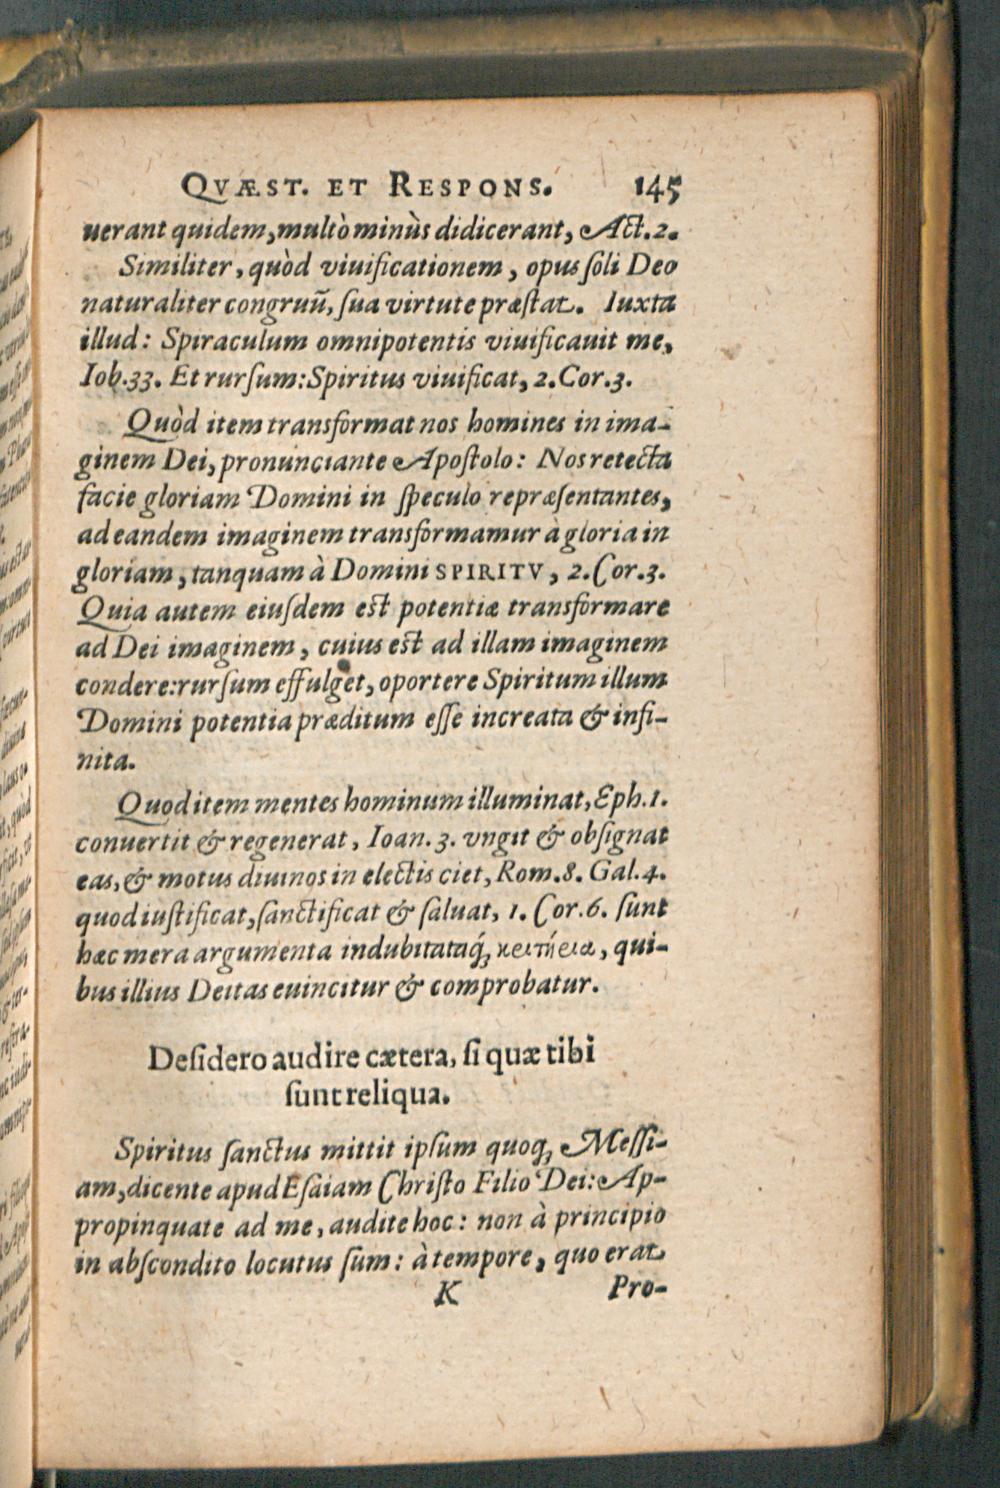 QVÆST. ET RESPONS. 145
uerant quidem, multò minùs didicerant, Act. 2.
Similiter, quòd viuificationem, opus ſoli Deo
naturaliter congruũ, ſua virtute præſtat. Iuxta
illud: Spiraculum omnipotentis viuificauit me,
Iob. 33. Et rurſum: Spiritus viuificat, 2. Cor. 3.
Quòd item transformat nos homines in ima-
ginem Dei, pronunciante Apoſtolo: Nos retecta
facie gloriam Domini in ſpeculo repræſentantes,
ad eandem imaginem transformamur à gloria in
gloriam, tanquam à Domini SPIRITV, 2. Cor. 3.
Quia autem eiuſdem eſt potentiæ transformare
ad Dei imaginem, cuius eſt ad illam imaginem
condere: rurſum effulget, oportere Spiritum illum
Domini potentia præditum eſſe increata & infi-
nita.
Quod item mentes hominum illuminat, Eph. 1.
conuertit & regenerat, Ioan. 3. vngit & obſignat
eas, & motus diuinos in electis ciet, Rom. 8. Gal. 4.
quod iuſtificat, ſanctificat & ſaluat, 1. Cor. 6. ſunt
hæc mera argumenta indubitataq́;, κριτήρια, qui-
bus illius Deitas euincitur & comprobatur.
Deſidero audire cætera, ſi quæ tibi
ſunt reliqua.
Spiritus ſanctus mittit ipſum quoq; Meſſi-
am, dicente apud Eſaiam Chriſto Filio Dei: Ap-
propinquate ad me, audite hoc: non à principio
in abſcondito locutus ſum: à tempore, quo erat
K Pro-